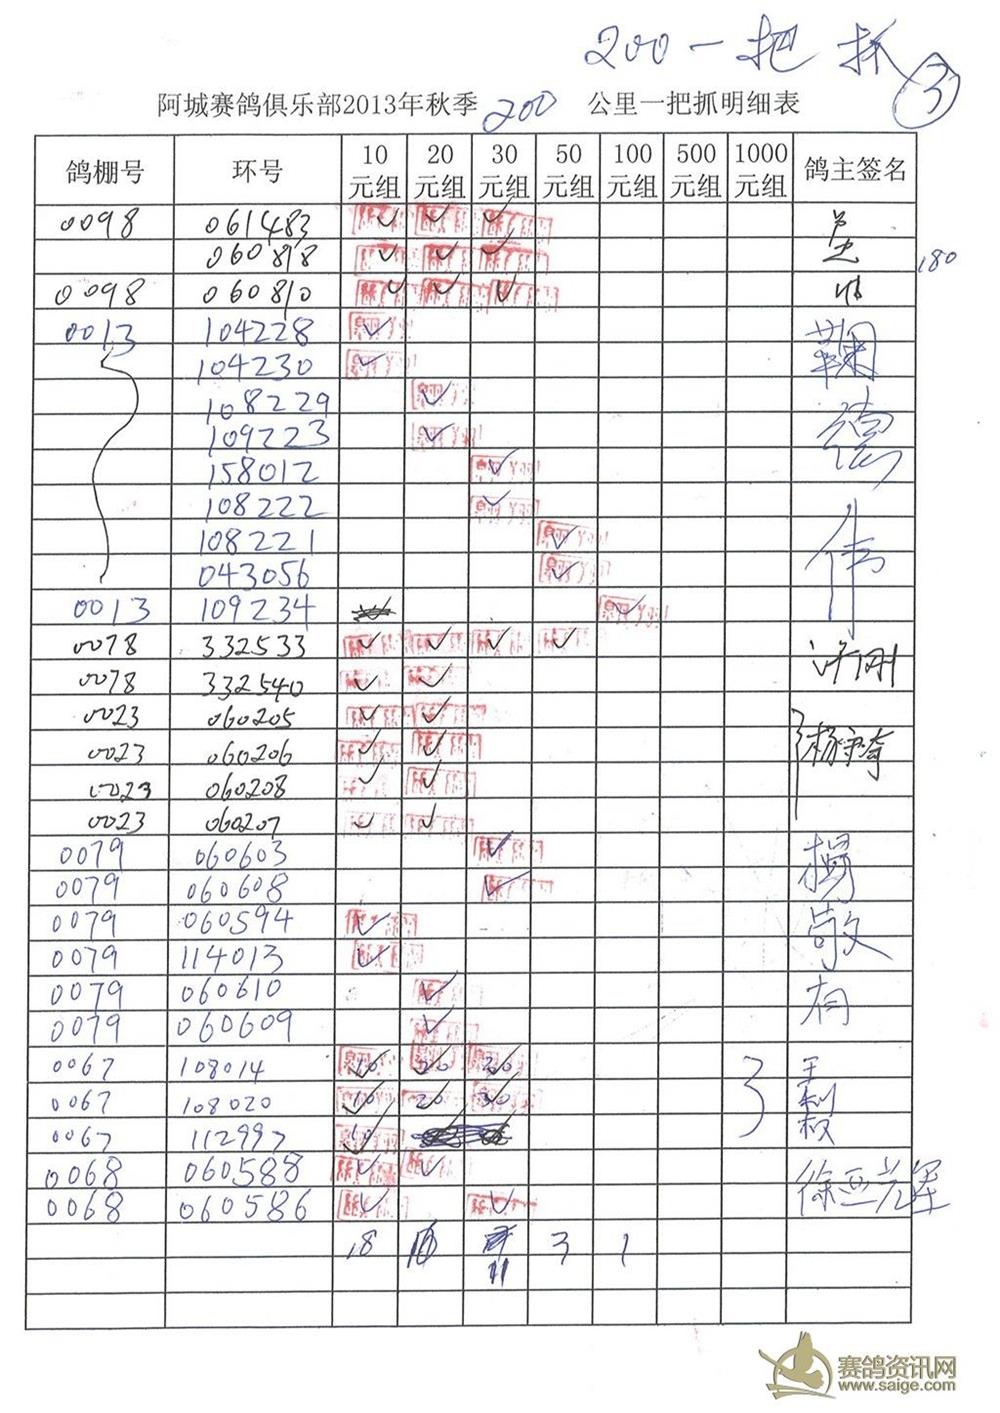 200一把抓
3
阿城赛鸽俱乐部2013年秋季200公里一把抓明细表
鸽棚号 环号 10元组 20元组 30元组 50元组 100元组 500元组 1000元组 鸽主签名
0098 061483 ✓ ✓ ✓
060818 ✓ ✓ ✓ 180
0098 060810 ✓ ✓ ✓
0013 104228 ✓ 鞠
104230 ✓
108229 ✓ 德
109223 ✓
158012 ✓
108222 ✓ 伟
108221 ✓
043056 ✓
0013 109234 ✓
0078 332533 ✓ ✓ ✓ ✓ 许刚
0078 332540 ✓ ✓
0023 060205 ✓ ✓
0023 060206 ✓ ✓
0023 060208 ✓ ✓
0023 060207 ✓ ✓
0079 060603 ✓ 杨
0079 060608 ✓
0079 060594 ✓ 敬
0079 114013 ✓
0079 060610 ✓ 有
0079 060609 ✓
0067 108014 10 20 30 3 王
0067 108020 10 20 30 利
0067 112997 10 权
0068 060588 ✓ ✓
0068 060586 ✓ ✓
18 3 1
11
赛鸽资讯网
www.saige.com